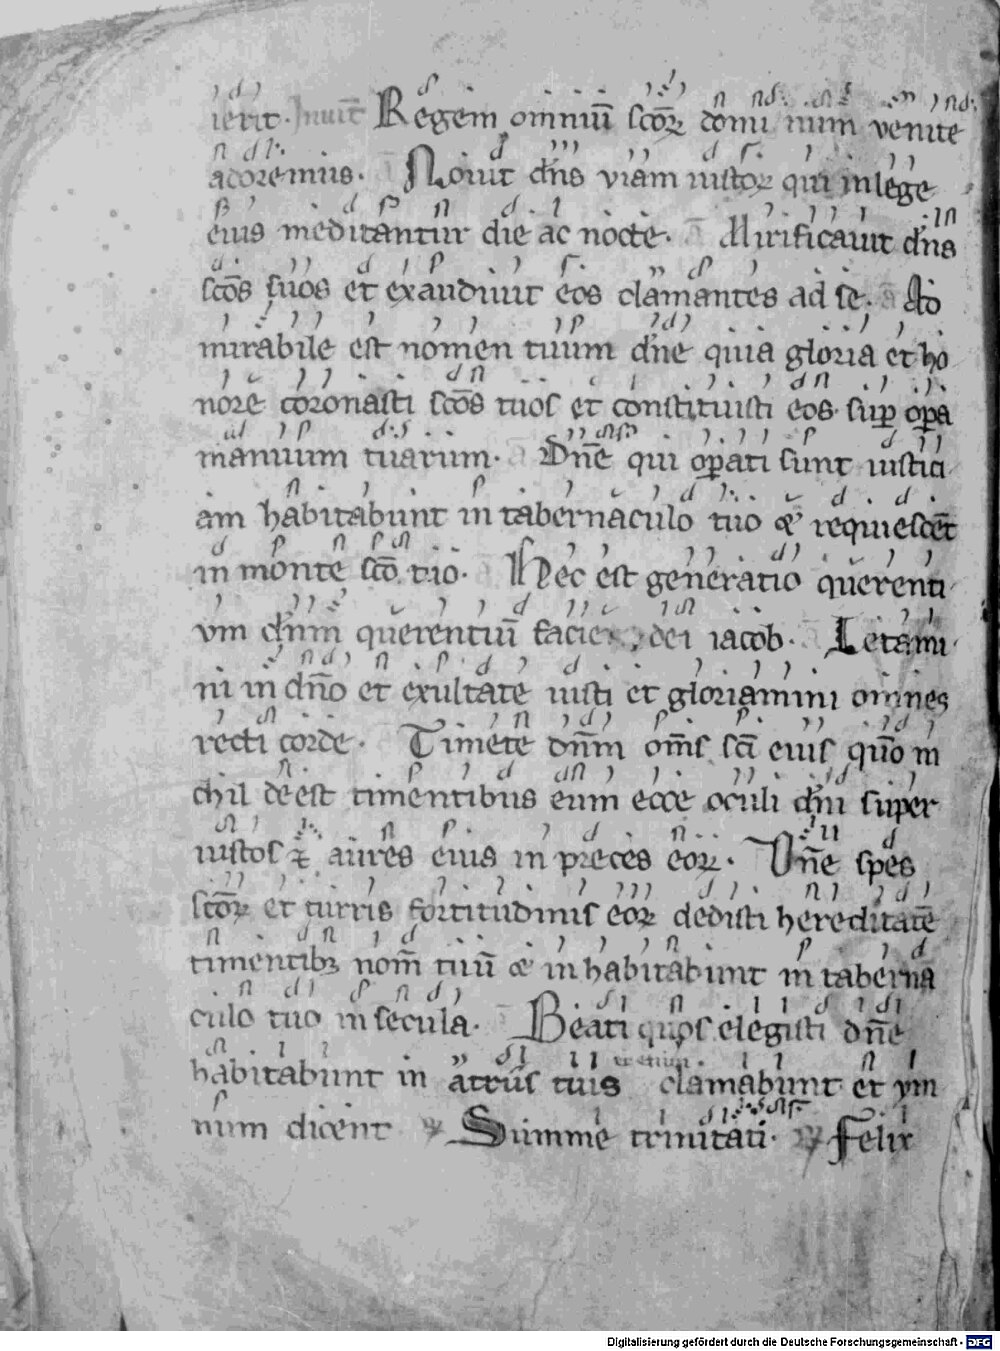 ierit. Inuit̄ Regem omniū scōꝝ domī num venite
adoremus. Nouit dn̄s viam iustoꝝ qui in lege
eius meditantur die ac nocte. a Mirificauit dn̄s
scōs suos et exaudiuit eos clamantes ad se. a Ad
mirabile est nomen tuum dn̄e quia gloria et ho
nore coronasti scōs tuos et constituisti eos suꝑ oꝑa
manuum tuarum. a Dn̄e qui oꝑati sunt iustici
am habitabunt in tabernaculo tuo & requiescēt
in monte scō tuo. Hec est generatio querenti
um dn̄m querentiū facie dei iacob. Letami
ni in dn̄o et exultate iusti et gloriamini omnes
recti corde. Timete dn̄m om̄s scī eius quō ni
chil deest timentibus eum ecce oculi dn̄i super
iustos & aures eius in preces eoꝝ. Dn̄e spes
scōꝝ et turris fortitudinis eoꝝ dedisti hereditatē
timentibꝫ nom̄ tuū & in habitabunt in taberna
culo tuo in secula. Beati quos elegisti dn̄e
habitabunt in atriis tuis clamabunt et ym
num dicent Summe trinitati. Felix
Digitalisierung gefördert durch die Deutsche Forschungsgemeinschaft - DFG